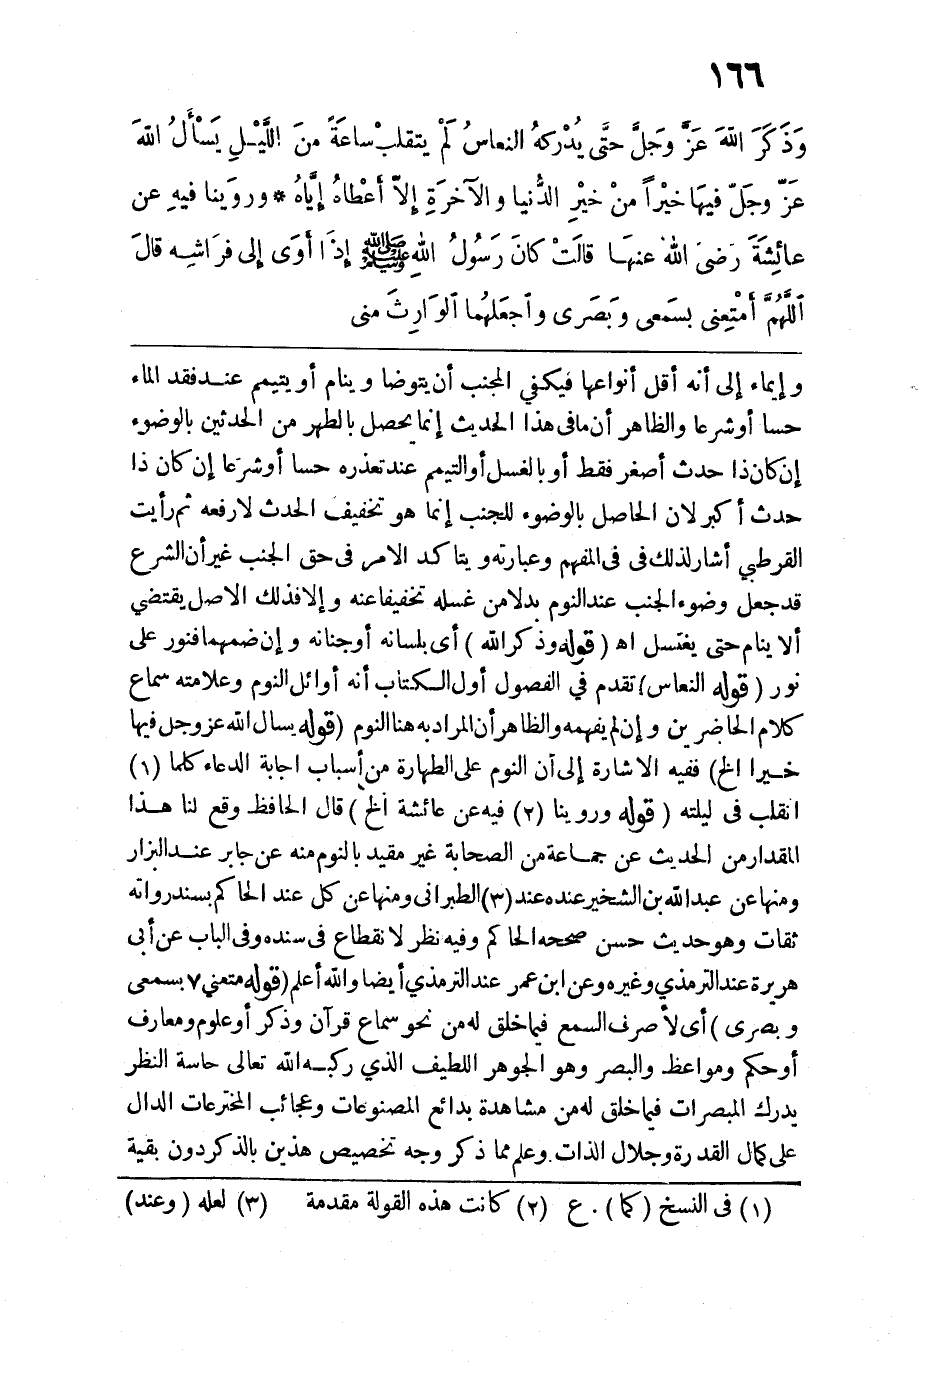 ١٦٦
وَذَكَرَ اللّهَ عَزَّ وَجَلَّ حتَّى يُدْركهُ النعاسُ لَمْ يتقلبْ ساعَةً منَ اللَّيْلِ يَسْأَلُ اللّهَ
عَزّ وجَلّ فيهَا خيْراً منْ خيْرِ الدُّنيا والآخرَةِ إلاّ أعْطاهُ إيَّاهُ * وروَينا فيهِ عن
عائِشَةَ رَضىَ اللّهُ عنهَا قالَتْ كانَ رَسُولُ اللّهِ ﷺ إذَا أوَى إلى فرَاشِهِ قالَ
اَللَّهُمَّ أمْتِعِنى بسَمعى وبَصَرى واجعَلهُما اَلوَارِثَ منى
وإيماء إلى أنه أقل أنواعها فيكفي المجنب أن يتوضا وينام أو يتيمم عند فقد الماء
حسا أو شرعا والظاهر أن ما فى هذا الحديث إنما يحصل بالطهر من الحدثين بالوضوء
إن كان ذا حدث أصغر فقط أو بالغسل أو التيمم عند تعذره حسا أو شرعا إن كان ذا
حدث أكبر لان الحاصل بالوضوء للجنب إنما هو تخفيف الحدث لا رفعه ثم رأيت
القرطبي أشار لذلك فى فى المفهم وعبارته ويتاكد الامر فى حق الجنب غير أن الشرع
قد جعل وضوء الجنب عند النوم بدلا من غسله تخفيفا عنه وإلا فذلك الاصل يقتضي
ألا ينام حتى يغتسل اه ( قوله وذكر الله ) أى بلسانه أو جنانه وإن ضمهما فنور على
نور ( قوله النعاس ) تقدم في الفصول أول الكتاب أنه أوائل النوم وعلامته سماع
كلام الحاضرين وإن لم يفهمه والظاهر أن المراد به هنا النوم ( قوله يسال الله عز وجل فيها
خيرا الخ ) ففيه الاشارة إلى أن النوم على الطهارة من أسباب اجابة الدعاء كلما (١)
انقلب فى ليلته ( قوله وروينا (٢) فيه عن عائشة الخ ) قال الحافظ وقع لنا هذا
المقدار من الحديث عن جماعة من الصحابة غير مقيد بالنوم منه عن جابر عند البزار
ومنها عن عبد الله بن الشخير عنده عند (٣) الطبرانى ومنها عن كل عند الحاكم بسند رواته
ثقات وهو حديث حسن صححه الحاكم وفيه نظر لانقطاع فى سنده وفى الباب عن أبى
هريرة عند الترمذي وغيره وعن ابن عمر عند الترمذي أيضا والله أعلم ( قوله متعني ٧ بسمعى
وبصرى ) أى لأصرف السمع فيما خلق له من نحو سماع قرآن وذكر أو علوم ومعارف
أو حكم ومواعظ والبصر وهو الجوهر اللطيف الذي ركبه الله تعالى حاسة النظر
يدرك المبصرات فيما خلق له من مشاهدة بدائع المصنوعات وعجائب المخترعات الدال
على كمال القدرة وجلال الذات. وعلم مما ذكر وجه تخصيص هذين بالذكر دون بقية
(١) فى النسخ (كما) . ع (٢) كانت هذه القولة مقدمة (٣) لعله ( وعند )